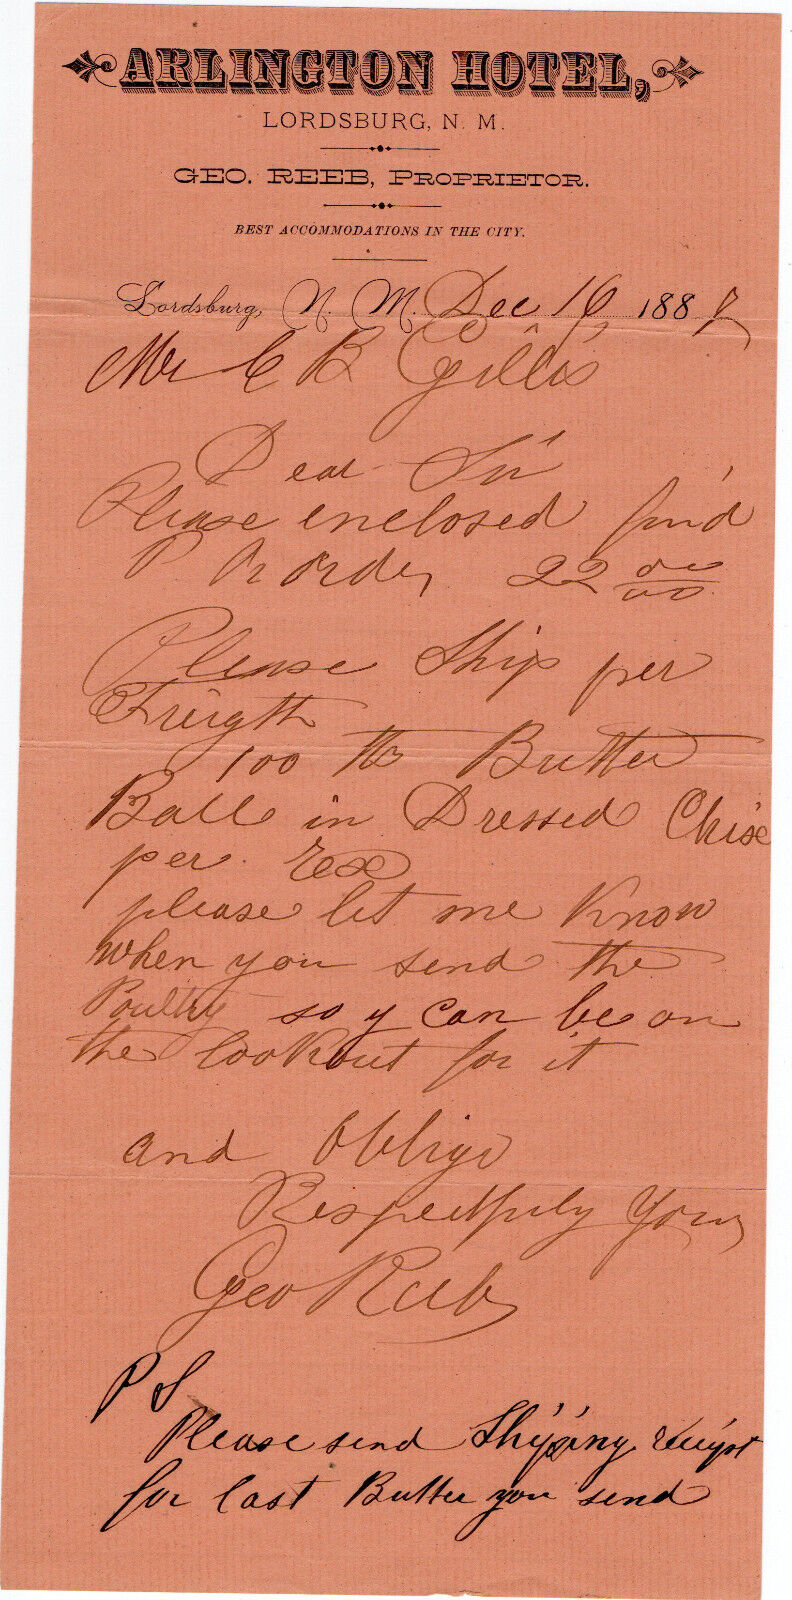 ARLINGTON HOTEL,
LORDSBURG, N. M.
GEO. REEB, PROPRIETOR.
BEST ACCOMMODATIONS IN THE CITY.
Lordsburg, N. M. Dec 16, 1887
Mr C B Gillis
Dear Sir
Please enclosed find
P O order 22 00/00
Please Ship per
Freigth
100 lbs Butter
Ball in Dressed
per Ex
please let me Know
when you send the
Poultry so y can be on
the lookout for it
and Oblige
Respectfuly Yours
Geo Reeb
P S
Please send Shipping
for last Butter you send